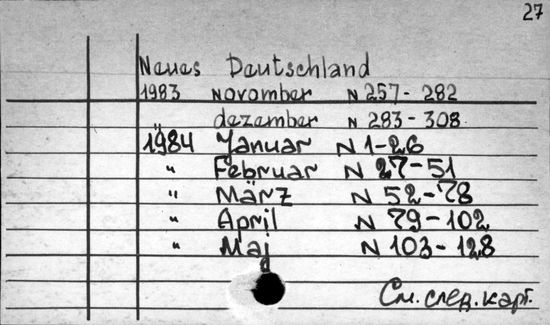 27
Neues Deutschland
1983 novomber N 257-282
" dezember N 283-308
1984 Januar N 1-26
" Februar N 27-51
" März N 52-78
" April N 79-102
" Maj N 103-128
См. след. карт.